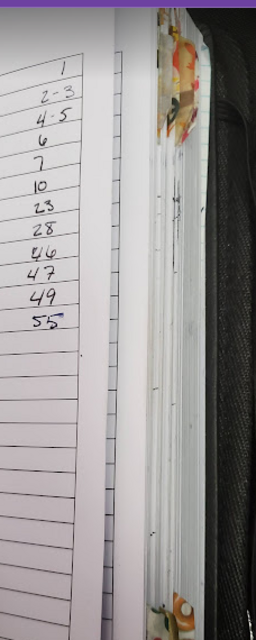 1
2-3
4-5
6
7
10
23
28
46
47
49
55